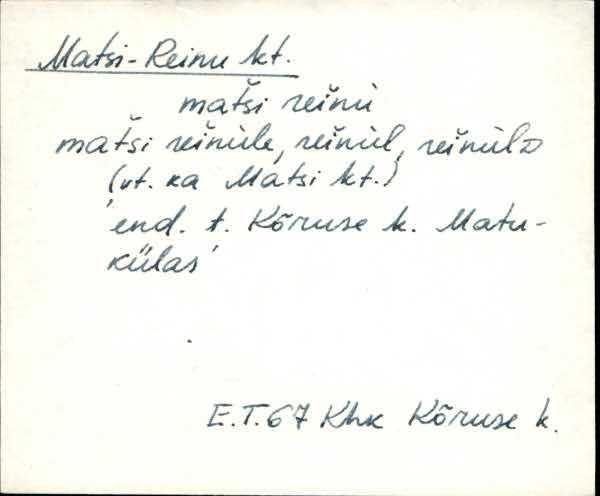 Matsi-Reinu kt.
mat̆si rein̆ù
mat̆si rein̆ùle, rein̆ùl, rein̆ùlD
(vt. ka Matsi kt.)
'end. t. Kõruse k. Matu-
külas'
E.T.67 Khk Kõruse k.